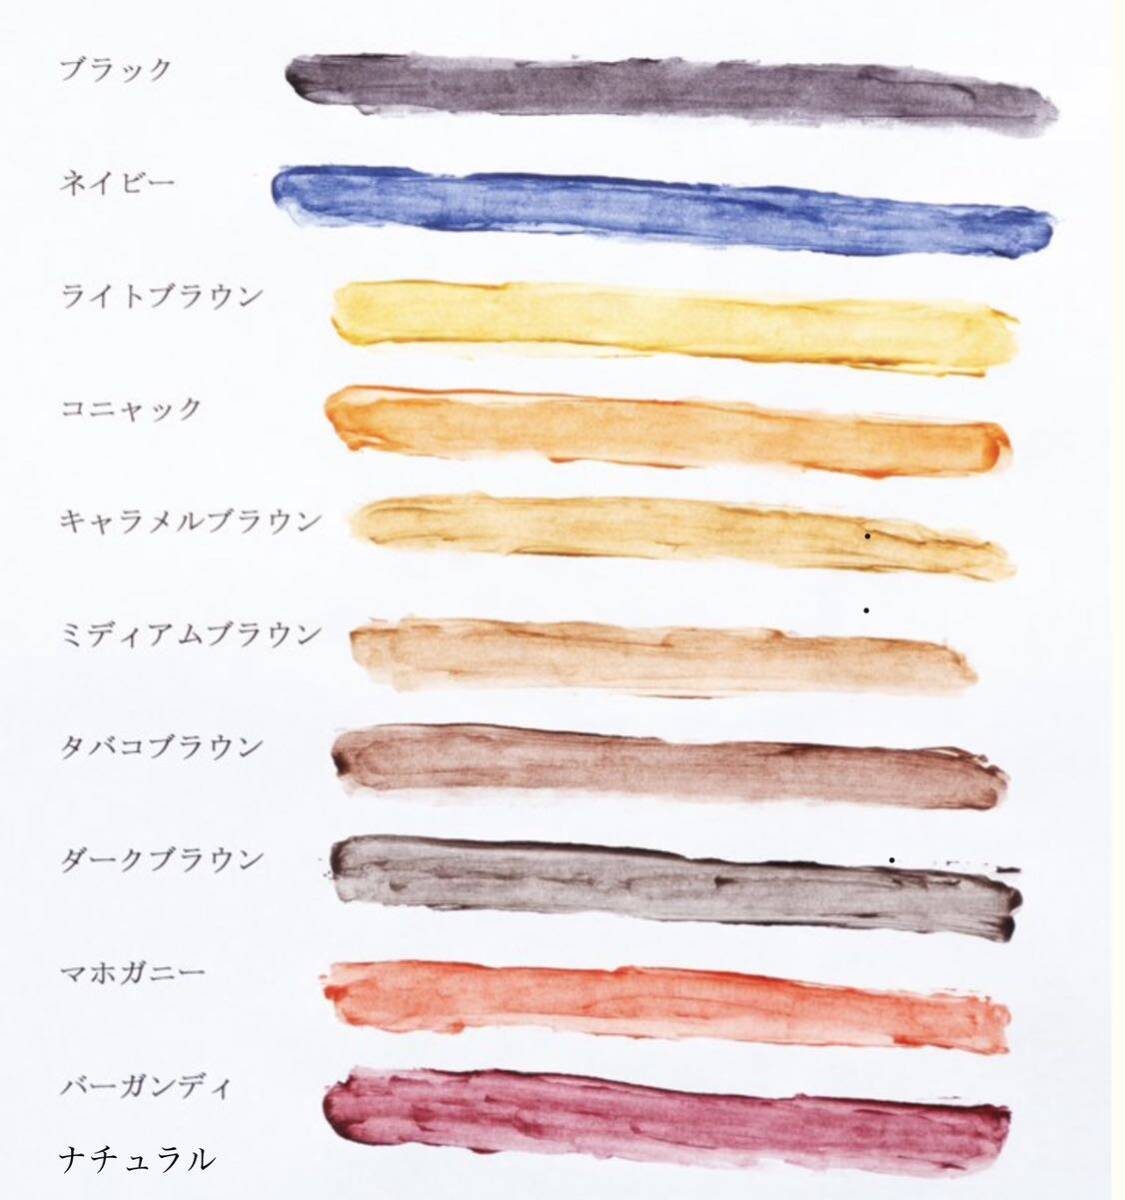 ブラック
ネイビー
ライトブラウン
コニャック
キャラメルブラウン
ミディアムブラウン
タバコブラウン
ダークブラウン
マホガニー
バーガンディ
ナチュラル